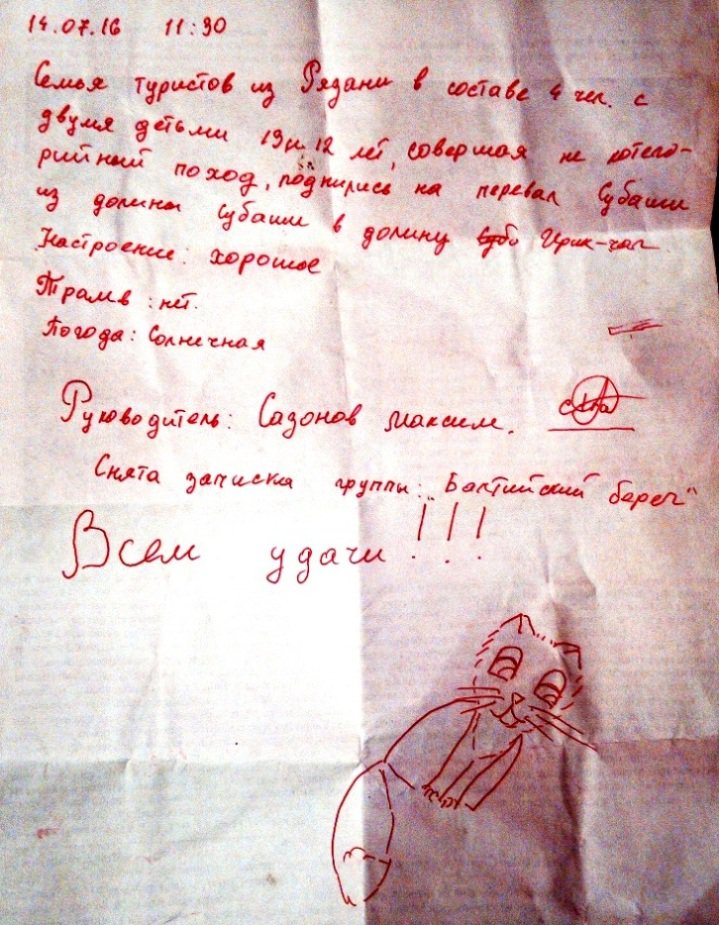 14.07.16 11:30
Семья туристов из Рязани в составе 4 чел. с
двумя детьми 19 и 12 лет, совершая не катего-
рийный поход, поднялись на перевал Субаши
из долины Субаши в долину Ирик-чат
Настроение: хорошое
Трамв: нет.
Погода: Солнечная
Руководитель: Садонов Максим.
Снята записка группы: „Балтийский берег"
Всем удачи!!!